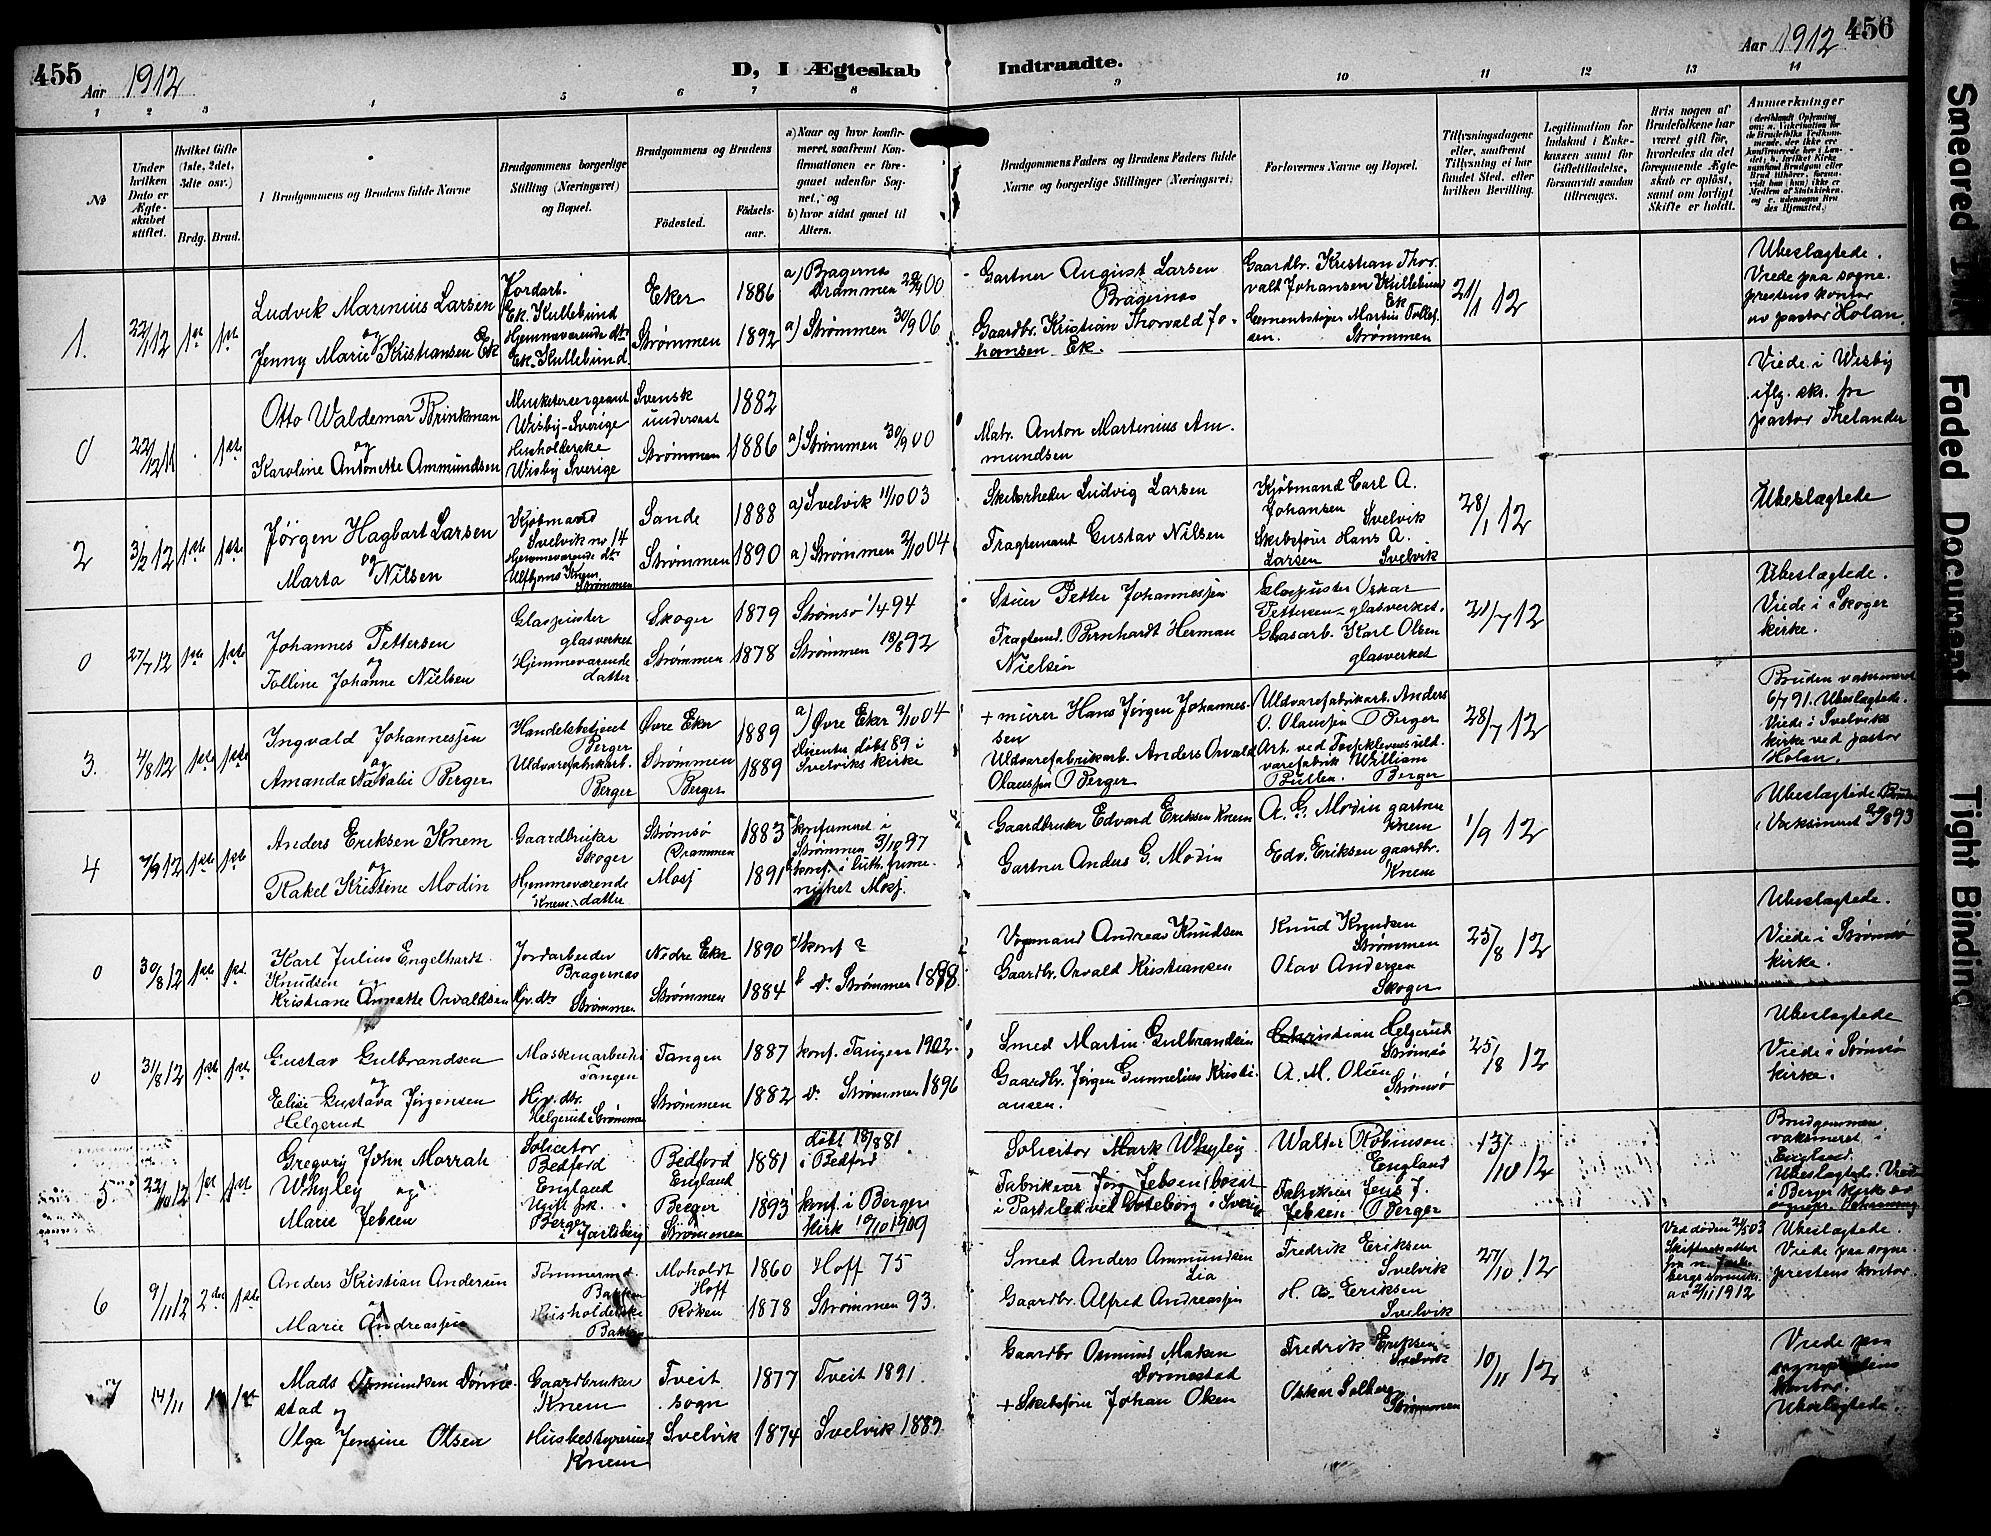 455
Aar 1912
D, I Ægteskab
1 2 3 4 5 6 7 8
№
Under hvilken Dato er Ægteskabet stiftet.
Hvilket Gifte (1ste, 2det, 3die osv.)
Brdg. Brud.
Brudgommens og Brudens fulde Navne
Brudgommens borgerlige Stilling (Næringsvei) og Bopæl.
Brudgommens og Brudens
Fødested.
Fødselsaar.
a) Naar og hvor konfirmeret, saafremt Konfirmationen er foregaaet udenfor Sognet, og
b) hvor sidst gaaet til Alters.
Indtraadte.
Aar 1912
456
9 10 11 12 13 14
Brudgommens Faders og Brudens Faders fulde Navne og borgerlige Stillinger (Næringsvei)
Forlovernes Navne og Bopæl.
Tillysningsdagene eller, saafremt Tillysning ei har fundet Sted, efter hvilken Bevilling.
Legitimation for Indskud i Enkekassen samt for Giftetilladelse, forsaavidt saadan tiltrænges.
Hvis nogen af Brudefolkene har været gift før, hvorledes da det foregaaende Ægteskab er opløst, samt om lovligt Skifte er holdt.
Anmærkninger
1. 22/1 12 1ste 1ste
Ludvik Marinius Larsen
og
Jenny Marie Kristiansen Ek
Jordarb.
Ek. Kullebund
Hjemmeværende dtr.
Ek. Kullebund
Eker 1886
Strømmen 1892
a) Bragernes Drammen 00
a) Strømmen 30/9 06
Gartner August Larsen
Bragernes
Gaardbr. Kristian Thorvald Jo-
hansen Ek.
Gaardbr. Kristian Thor-
vald Johansen Kullebund
Ek
Cementstøper Martin Tollef-
sen. Strømmen
21/1 12
Ubeslagtede.
Viede paa sogne-
prestens kontor
av pastor Holan.
0 22/12 11 1ste
Otto Waldemar Brinkman
og
Karoline Antonette Ammundsen
Wisby-Sverige
Husholderske
Wisby Sverige
Svensk
undersaat 1882
Strømmen 1886
a) Strømmen 30/9 00
Matr. Anton Martinius Am-
mundsen
Viede i Wisby
iflg. skr. fra
pastor Thelander
2 3/2 12 1ste 1ste
Jørgen Hagbart Larsen
og
Marta Nilsen
Kjøbmand
Svelvik nr 14
Hjemmeværende dtr.
Knem
Strømmen
Sande 1888
Strømmen 1890
a) Svelvik 11/10 03
a) Strømmen 2/10 04
Skibsrheder Ludvig Larsen
Fragtemand Gustav Nilsen
Kjøbmand Carl A.
Johansen Svelvik
Skibsfører Hans A.
Larsen Svelvik
28/1 12
Ubeslagtede
0 27/7 12 1ste 1ste
Johannes Pettersen
og
Tolline Johanne Nielsen
Glaspuster
glasverket
Hjemmeværende
datter
Skoger 1879
Strømmen 1878
Strømsø 1/4 94
Strømmen 18/9 92
Stuer Petter Johannessen
Fragtemd. Bernhardt Herman
Nielsen
Glaspuster Oskar
Pettersen glasverket.
Glasarb. Karl Olsen
glasverket
21/7 12
Ubeslagtede.
Viede i Skoger
kirke.
3. 4/8 12 1ste 1ste
Ingvald Johannessen
og
Amanda Natalie Berger
Handelsbetjent
Berger
Uldvarefabrikarb.
Berger
Øvre Eker 1889
Strømmen
Berger 1889
a) Øvre Eker 9/10 04
døbt 89 i
Svelviks kirke
+ murer Hans Jørgen Johannes-
sen
Uldvarefabrikarb. Anders Orvald
Olaussen Berger
Uldvarefabrikarb. Anders
O. Olaussen Berger
Arb. ved Fossklevens uld-
varefabrik William
Bullen. Berger
28/7 12
Bruden vaksineret
6/7 91. Ubeslagtede.
Viede i Svelviks
kirke ved pastor
Holan.
4 7/9 12 1ste 1ste
Anders Eriksen Knem
og
Rakel Kristine Modin
Gaardbruker
Skoger
Hjemmeværende
Knem. datter
Strømsø
Drammen 1883
Mosj 1891
konfirmeret i
Strømmen 3/10 97
konf. i luth. frime-
nighet Mosj.
Gaardbruker Edvard Eriksen Knem
Gartner Anders G. Modin
A. G. Modin gartner
Knem
Edv. Eriksen gaardbr.
Knem
1/9 12
Ubeslagtede Bruden
Vaksineret 93
0 30/8 12 1ste 1ste
Karl Julius Engelhardt
Knudsen og
Kristiane Annette Orvaldsen
Jordarbeider
Bragernes
Hjv. dtr.
Strømmen
Nedre Eker 1890
Strømmen 1884
a) konf ?
Strømmen 1898.
Vognmand Andreas Knudsen
Gaardbr. Orvald Kristiansen
Knud Knudsen
Strømmen
Olav Andersen
Skoger
25/8 12
Ubeslagtede.
Viede i Strømsø
kirke.
0 31/8 12 1ste 1ste
Gustav Gulbrandsen
og
Elise Gustava Jørgensen
Helgerud
Maskinarbeider
Tangen
Hjv. dtr.
Helgerud i Strømmen
Tangen 1887
Strømmen 1882
konf. Tangen 1902.
Strømmen 1896
Smed Martin Gulbrandsen
Gaardbr. Jørgen Gunnelius Kristi-
ansen.
Christian Helgerud
Strømsø
A. M. Olsen
Strømsø
25/8 12
Ubeslagtede
Viede i Strømsø
kirke.
5 22/10 12 1ste 1ste
Gregory John Morrah
Whyley og
Marie Jebsen
Solicitor
Bedford
England
Ugift frk.
Berger
i Jarlsberg
Bedford
England 1881
Berger
Strømmen 1893
døbt 18/8 81
i Bedford
konf. i Berger
kirk 10/10 1909
Solicitor Mark Whyley
Fabrikeier Jørg Jebsen bosat
i Partilet ved Gøteborg i Sverige
Walter Robinson
England
Fabrikeier Jens J.
Jebsen Berger
13/10 12
Brudgommen
vaksineret i
England.
Ubeslagtede. Viede
i Berger kirke av
6 9/11 12 2den 1ste
Anders Kristian Andersen
og
Marie Andreassen
Tømmermd.
Bakken
Husholderske
Bakken
Moholdt
Hoff 1860
Røken 1878
Hoff 75
Strømmen 93.
Smed Anders Ammundsen
Lia
Gaardbr. Alfred Andreassen
Fredrik Eriksen
Svelvik
H. A. Eriksen
Svelvik
27/10 12
Ved døden 2/5 03
Skifteretsattest
av 2/11 1912
Ubeslagtede.
Viede paa sogne-
prestens kontor.
7 14/11 1ste
Mads Osmundsen Dønne-
stad og
Olga Jensine Olsen
Gaardbruker
Knem
Husbestyrerinde
Knem
Tveit
sogn 1877
Svelvik 1874
Tveit 1891.
Svelvik 1889
Gaardbr Osmund Madsen
Dønnestad
+ Skibsfører Johan Olsen
Fredrik Eriksen
Svelvik
Oskar Solberg
Strømmen
10/11 12
Viede paa
sogneprestens
kontor.
Ubeslagtede.
Smeared Ink
Faded Document
Tight Binding